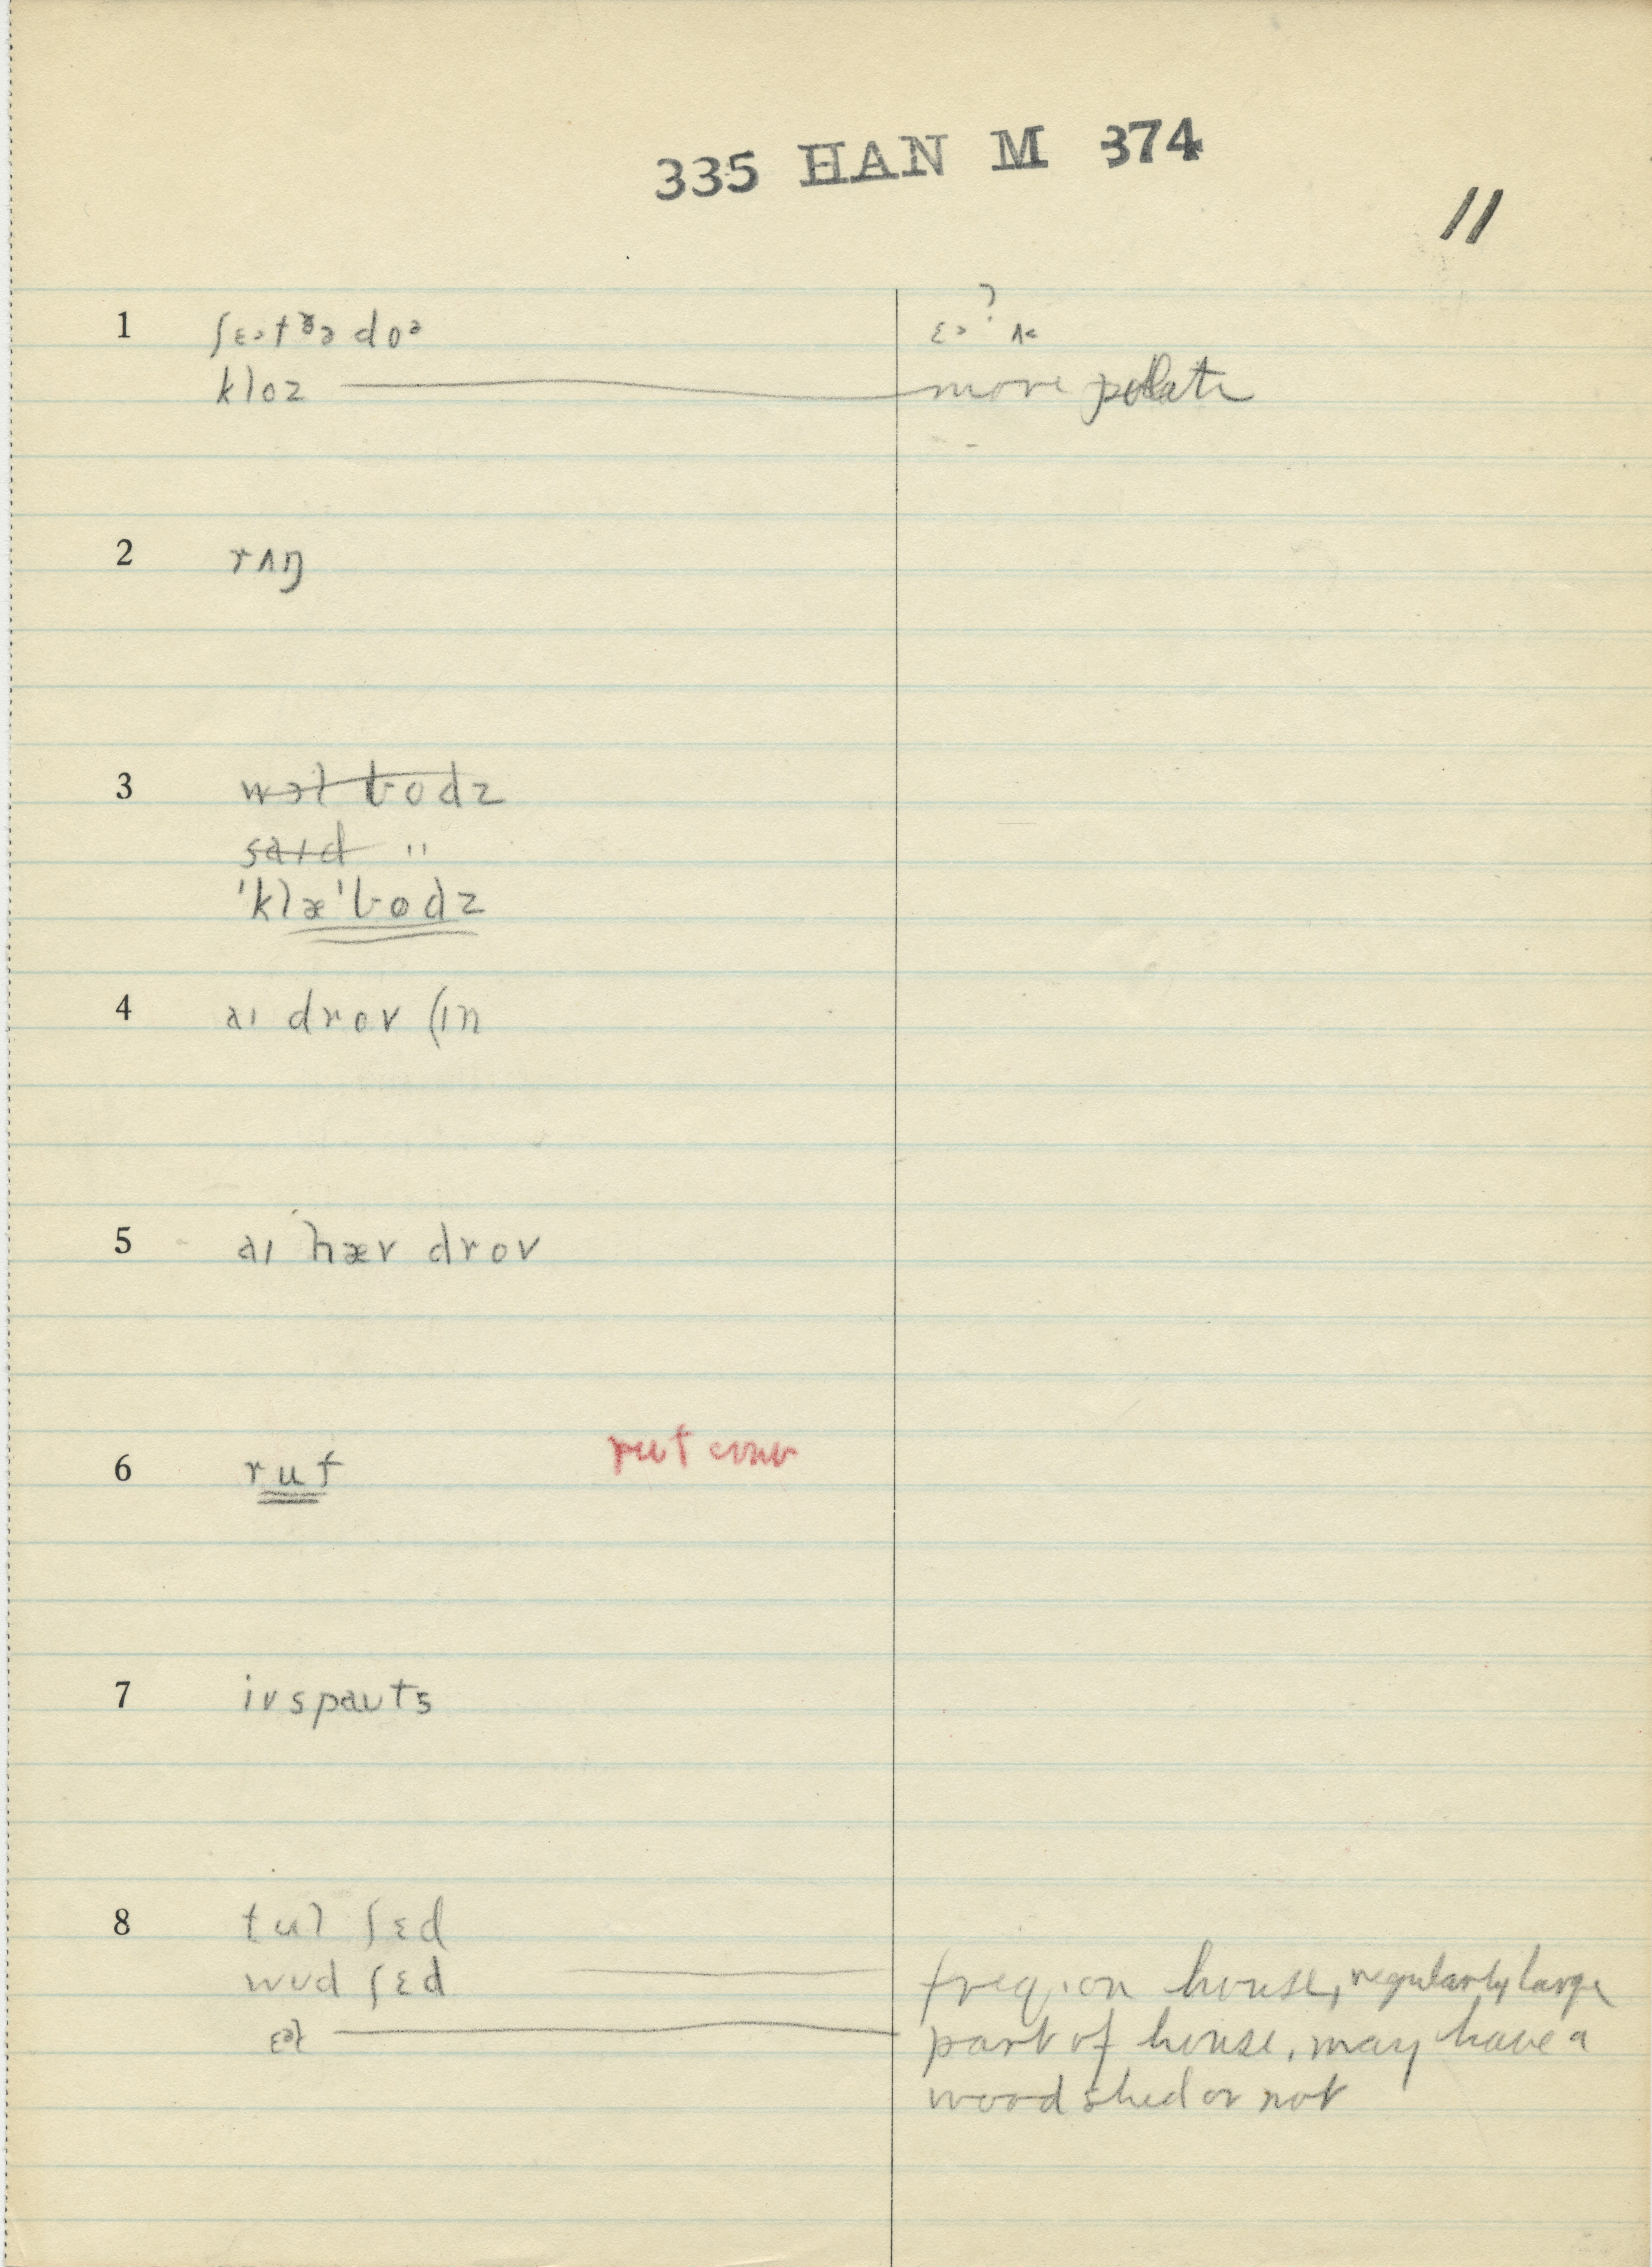 335 HAN M 374
11
1 ʃɛət ðə doə ɛə? ʌ<
kloz more polite
2 rʌŋ
3 wɔl bodz
said "
'klæ'bodz
4 aɪ drov (ɪn
5 aɪ hæv drov
6 ruf ruf conv
7 ivspauts
8 tul ʃɛd
wud ʃɛd freq. on house, regularly large
ɛəl part of house, may have a
wood shed or not